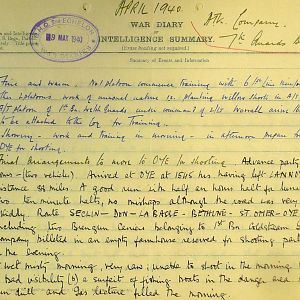 APRIL 1940.
Atk. Company.
WAR DIARY
INTELLIGENCE SUMMARY.
(Erase heading not required).
2nd ECHELON
9 MAY 1940
Summary of Events and Information
Fine and warm. No 1 platoon commence training with
other platoons. Work of unusual nature i.e. planting willow shoots in A/T
A/T platoon of 1st Bn Welsh Guards under command of Lt. Worrall arrive
to be attached to the Coy for Training.
Showery - work and training in morning - in afternoon prepare
OYE for shooting.
Final arrangements to move to OYE to shooting. Advance party
(two vehicles). Arrived at OYE at 1545 hrs having left LANNOY
distance 82 miles. A good run with half an hours halt for
two ten minute halts, no mishaps although the road was very
Route SECLIN - DON - LA BASSLE - BETHUNE - ST. OMER - OYE
including two Brengun Carriers belonging to 1st Bn Coldstream
Company billeted in an empty farmhouse reserved for shooting
the Evening.
misty morning, very rare; unable to shoot in the morning
bad visibility (b) a suspect of fishing boats in the danger area
drill and Gas lecture filled the morning.